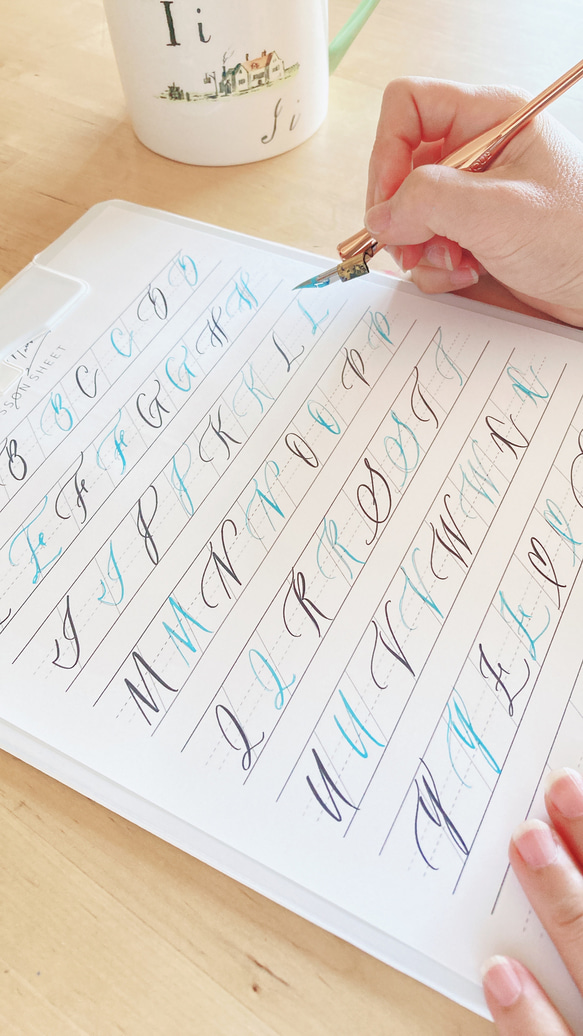 I i
I i
SSON SHEET
B B C C D D
E F F G G H H
I I J J K K L L
M M N N O O P P
Q Q R R S S T T
U U V V W W X X
Y Y Z Z